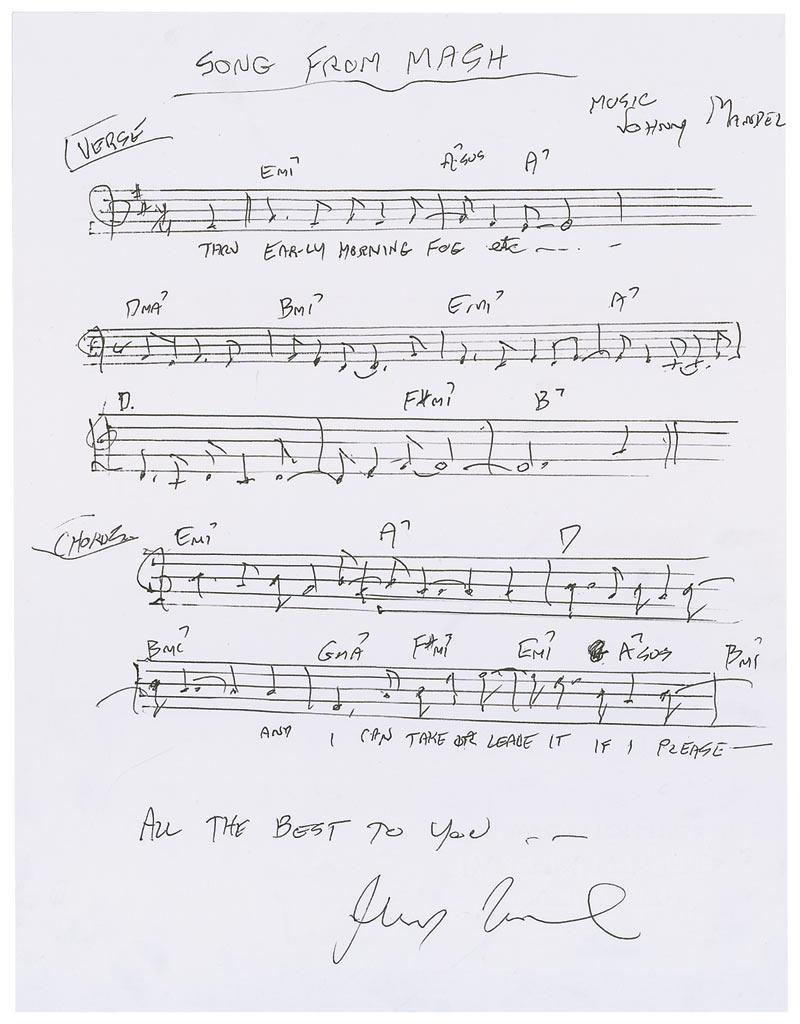 SONG FROM MASH
MUSIC
JOHNNY MANDEL
VERSE
EMI7 A7SUS A7
THRU EAR-LY MORNING FOG etc --- . -
DMA7 BMI7 EMI7 A7
D. F#MI7 B7
EMI7 A7 D
GMA7 F#MI7 EMI7 A7SUS BMI7
AND I CAN TAKE OR LEAVE IT IF I PLEASE —
ALL THE BEST TO YOU -- —